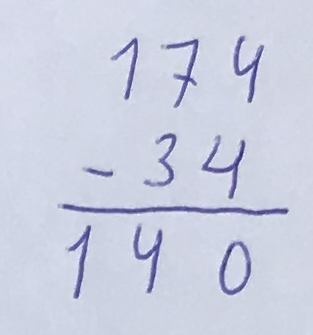 174
- 34
140